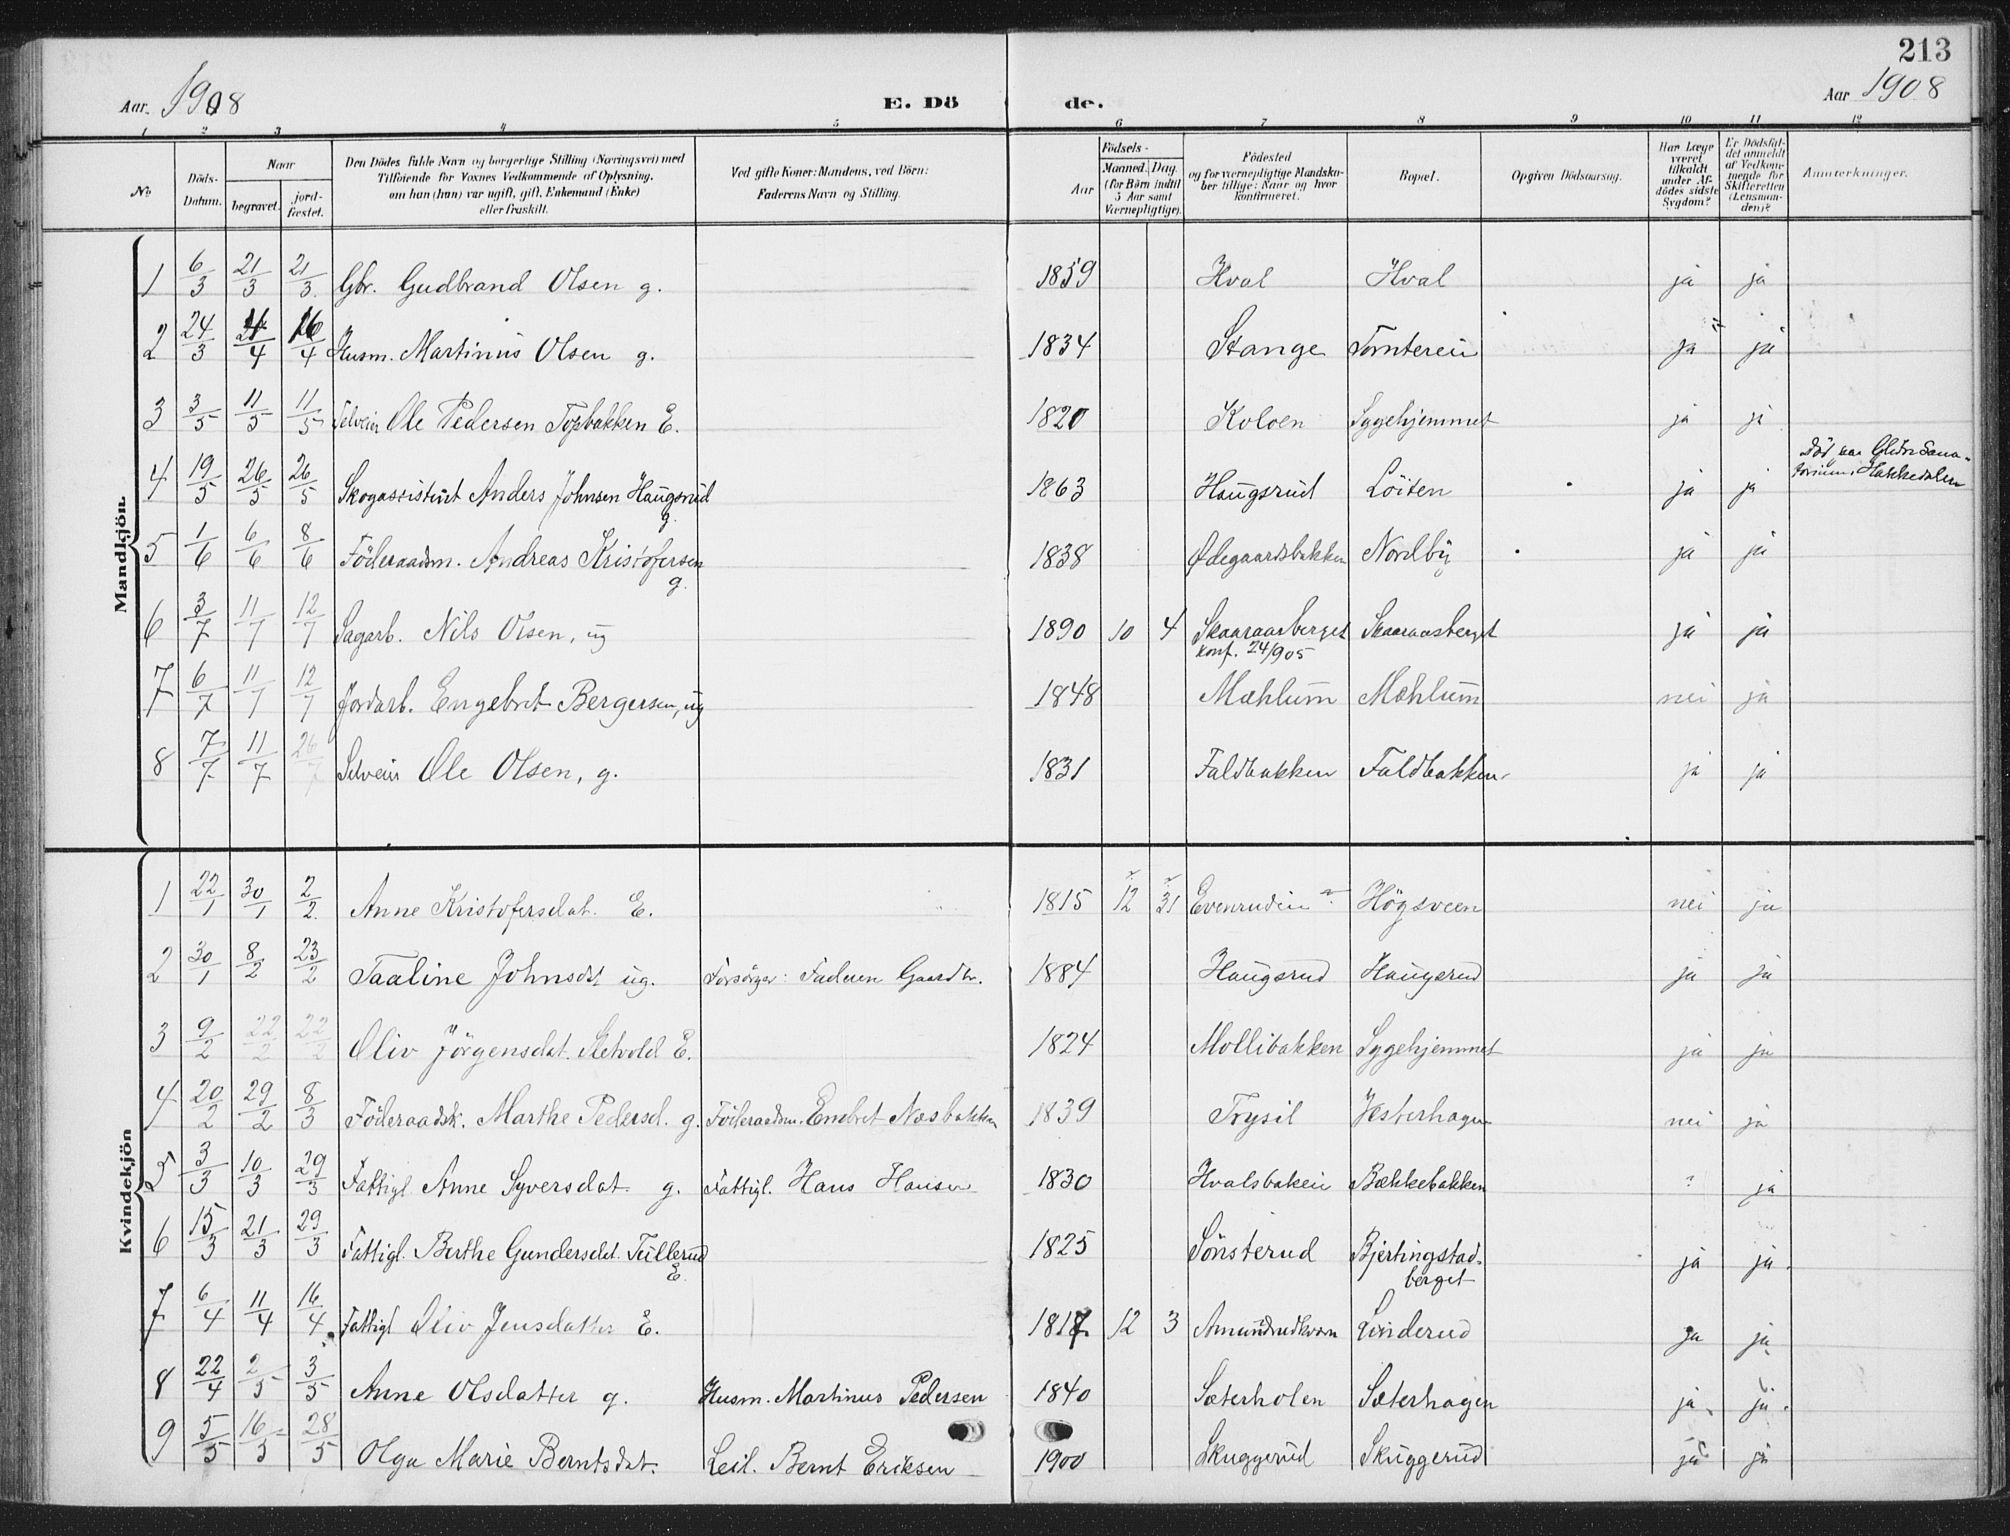 213
Aar. 1908 E. Dö de. Aar 1908
1 2 3 4 5 6 7 8 9 10 11 12
No Döds-Datum. Naar begravet. jord-fæstet. Den Dödes fulde Navn og borgerlige Stilling (Næringsvei) med Tilföiende for Voxnes Vedkommende af Oplysning, om han (hun) var ugift, gift, Enkemand (Enke) eller fraskilt. Ved gifte Koner: Mandens, ved Börn: Faderens Navn og Stilling. Aar Födsels- Maaned. Dag. (for Börn indtil 5 Aar samt Værnepligtige). Födested og for værnepligtige Mandskaber tillige: Naar og hvor konfirmeret. Bopæl. Opgiven Dödsaarsag. Har Læge været tilkaldt under Afdödes sidste Sygdom? Er Dödsfaldet anmeldt af Vedkommende for Skifteretten (Lensmanden)? Anmerkninger.
Mandkjön.
1 6/3 21/3 21/3 Gbr. Gudbrand Olsen g. 1859 Hval Hval ja ja
2 24/3 /4 16/4 Husm. Martinus Olsen g. 1834 Stange ja ja
3 3/5 11/5 11/5 Selveier Ole Pedersen Topbakken E. 1820 Koloen Sygehjemmet ja ja
4 19/5 26/5 26/5 Skogassistent Anders Johnsen Haugsrud g. 1863 Haugsrud Löiten ja ja Död paa Glitre Sanatorium, Hakkedalen
5 1/6 6/6 8/6 Föderaadsm. Andreas Kristofersen g. 1838 Ødegaardsbakken Nordby ja ja
6 3/7 11/7 12/7 Sagarb. Nils Olsen, ug 1890 10 4 Skaaraasberget Skaaraasberget ja ja
konf. 24/905
7 6/7 11/7 12/7 Jordarb. Engebret Bergersen, ug 1848 Mæhlum Mæhlum nei ja
8 7/7 11/7 26/7 Selveier Ole Olsen, g. 1831 Faldbakken Faldbakken ja ja
Kvindekjön
1 22/1 30/1 2/2 Anne Kristofersdat. E. 1815 12 31 Evenrudein ? Högsveen nei ja
2 30/1 8/2 23/2 Taaline Johnsdt ug. Forsörger: Faderen Gaardbr. 1884 Haugsrud Haugsrud ja ja
3 9/2 22/2 22/2 Oliv Jörgensdat. E. 1824 Mollibakken Sygehjemmet ja ja
4 20/2 29/2 8/3 Föderaadsk. Marthe Pedersd. g. Föderaadsm. Embret Næsbakken 1839 Trysil Vesterhagen nei ja
5 3/3 10/3 29/3 Fattigl. Anne Syversdat. g. Fattigl. Hans Hansen 1830 Hvalsbakein Bækkebakken ? ja
6 15/3 21/3 29/3 Fattigl. Berthe Gundersdat. Tullerud E. 1825 Sönsterud Bjertingstadberget ja ja.
7 6/4 11/4 16/4 Fattigl Oliv Jensdatter E. 1817 12 3 Amundrudkvern Linderud ja ja
8 22/4 2/5 3/5 Anne Olsdatter g. Husm. Martinus Pedersen 1840 Sæterholen Sæterhagen ja ja.
9 5/5 16/5 28/5 Olga Marie Berntsdat. Leil. Bernt Eriksen 1900 Skuggerud Skuggerud ja ja